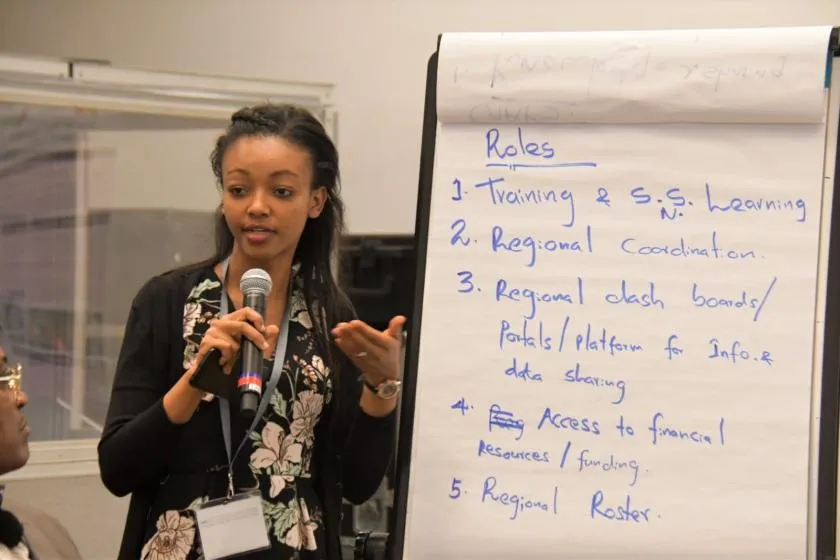 Roles
1. Training & S.S. Learning
N.
2. Regional Coordination.
3. Regional dash boards/
Portals/Platform for Info. &
data sharing
4. Access to financial
Resources/funding.
5. Regional Roster.